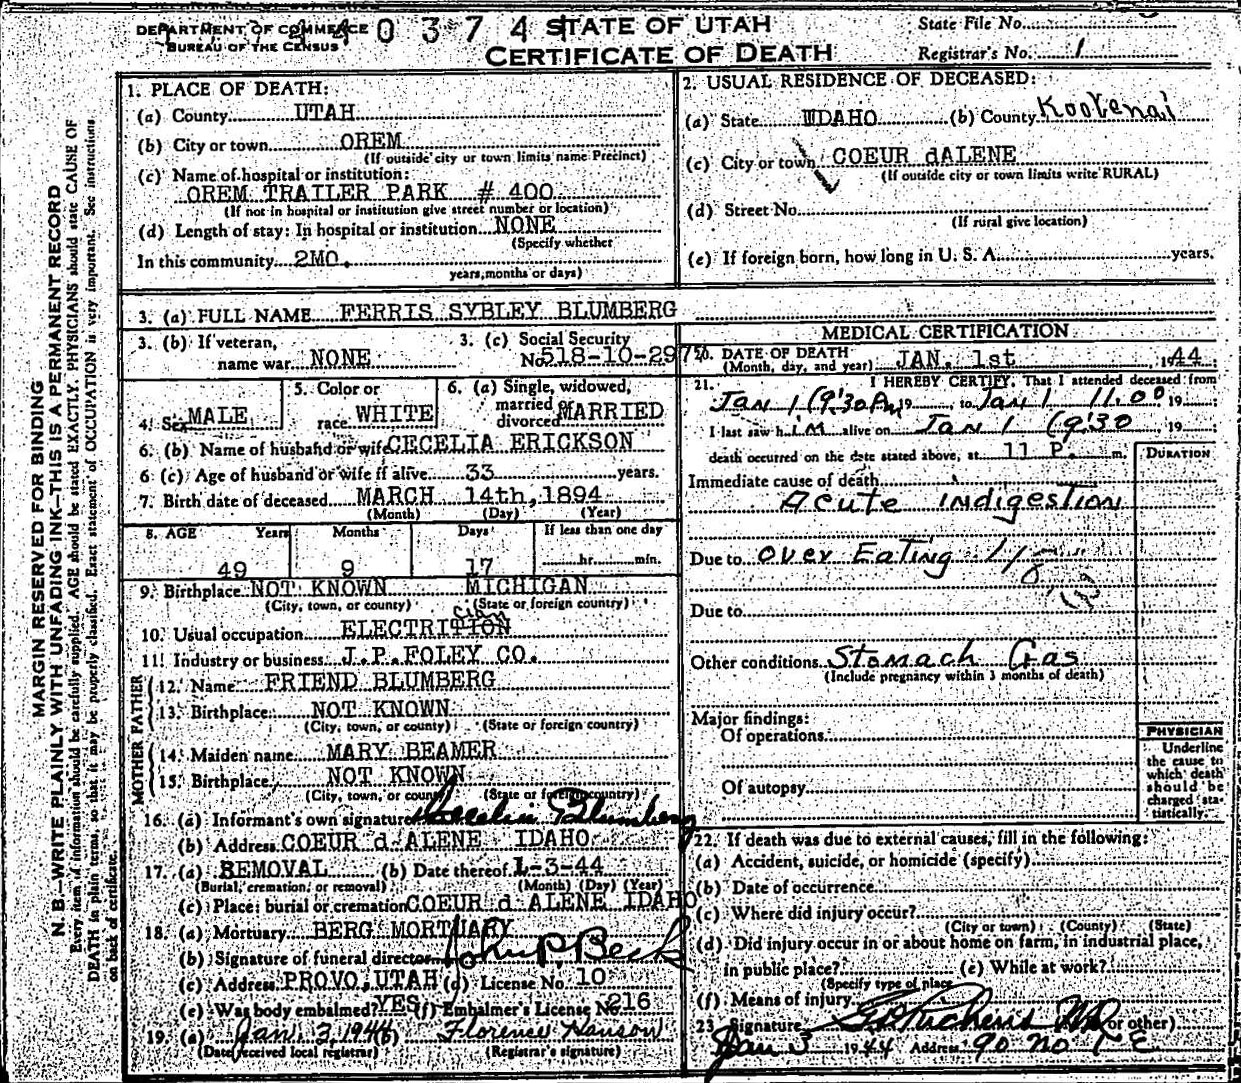 DEPARTMENT OF COMMERCE
BUREAU OF THE CENSUS
4 0 3 7 4
STATE OF UTAH
CERTIFICATE OF DEATH
State File No.
Registrar's No. 1
MARGIN RESERVED FOR BINDING
N. B.—WRITE PLAINLY WITH UNFADING INK—THIS IS A PERMANENT RECORD
Every item of information should be carefully supplied. AGE should be stated EXACTLY. PHYSICIANS should state CAUSE OF
DEATH in plain terms, so that it may be properly classified. Exact statement of OCCUPATION is very important. See instructions
on back of certificate.
1. PLACE OF DEATH:
(a) County UTAH
(b) City or town OREM
(If outside city or town limits name Precinct)
(c) Name of hospital or institution:
OREM TRAILER PARK # 400
(If not in hospital or institution give street number or location)
(d) Length of stay: In hospital or institution NONE
(Specify whether
In this community 2MO.
years, months or days)
2. USUAL RESIDENCE OF DECEASED:
(a) State IDAHO (b) County Kootenai
(c) City or town COEUR dALENE
(If outside city or town limits write RURAL)
(d) Street No.
(If rural give location)
(e) If foreign born, how long in U. S. A. years.
3. (a) FULL NAME FERRIS SYBLEY BLUMBERG
3. (b) If veteran,
name war NONE
3. (c) Social Security
No. 518-10-297
4. Sex MALE
5. Color or
race WHITE
6. (a) Single, widowed,
married or
divorced MARRIED
6. (b) Name of husband or wife CECELIA ERICKSON
6 (c) Age of husband or wife if alive 33 years.
7. Birth date of deceased MARCH 14th, 1894
(Month) (Day) (Year)
8. AGE Years Months Days If less than one day
49 9 17 hr. min.
9. Birthplace NOT KNOWN MICHIGAN
(City, town, or county) (State or foreign country)
cian
10. Usual occupation ELECTRITION
11. Industry or business J.P.FOLEY CO.
FATHER
12. Name FRIEND BLUMBERG
13. Birthplace NOT KNOWN
(City, town, or county) (State or foreign country)
MOTHER
14. Maiden name MARY BEAMER
15. Birthplace NOT KNOWN
(City, town, or county) (State or foreign country)
16. (a) Informant's own signature Cecelia Blumberg
(b) Address COEUR d ALENE IDAHO
17. (a) REMOVAL (b) Date thereof 1-3-44
(Burial, cremation, or removal) (Month) (Day) (Year)
(c) Place: burial or cremation COEUR d ALENE IDAHO
18. (a) Mortuary BERG MORTUARY
(b) Signature of funeral director John P. Beck
(c) Address PROVO, UTAH (d) License No. 10
(e) Was body embalmed? YES (f) Embalmer's License No. 216
19. (a) Jan. 3, 1944 (b) Florence Hanson
(Date received local registrar) (Registrar's signature)
MEDICAL CERTIFICATION
20. DATE OF DEATH
(Month, day, and year) JAN. 1st 1944
21. I HEREBY CERTIFY, That I attended deceased from
Jan 1 (9:30 Pm) 19 to Jan 1 11.00 19
I last saw him alive on Jan 1 (9:30 19
death occurred on the date stated above, at 11 P. m.
DURATION
Immediate cause of death
Acute indigestion
Due to Over Eating
Due to
Other conditions Stomach Gas
(Include pregnancy within 3 months of death)
Major findings:
Of operations
Of autopsy
PHYSICIAN
Underline
the cause to
which death
should be
charged sta-
tistically.
22. If death was due to external causes, fill in the following:
(a) Accident, suicide, or homicide (specify)
(b) Date of occurrence
(c) Where did injury occur?
(City or town) (County) (State)
(d) Did injury occur in or about home on farm, in industrial place,
in public place? (e) While at work?
(Specify type of place
(f) Means of injury
23. Signature MD (or other)
Jan 3 1944 Address 90 No 1 E